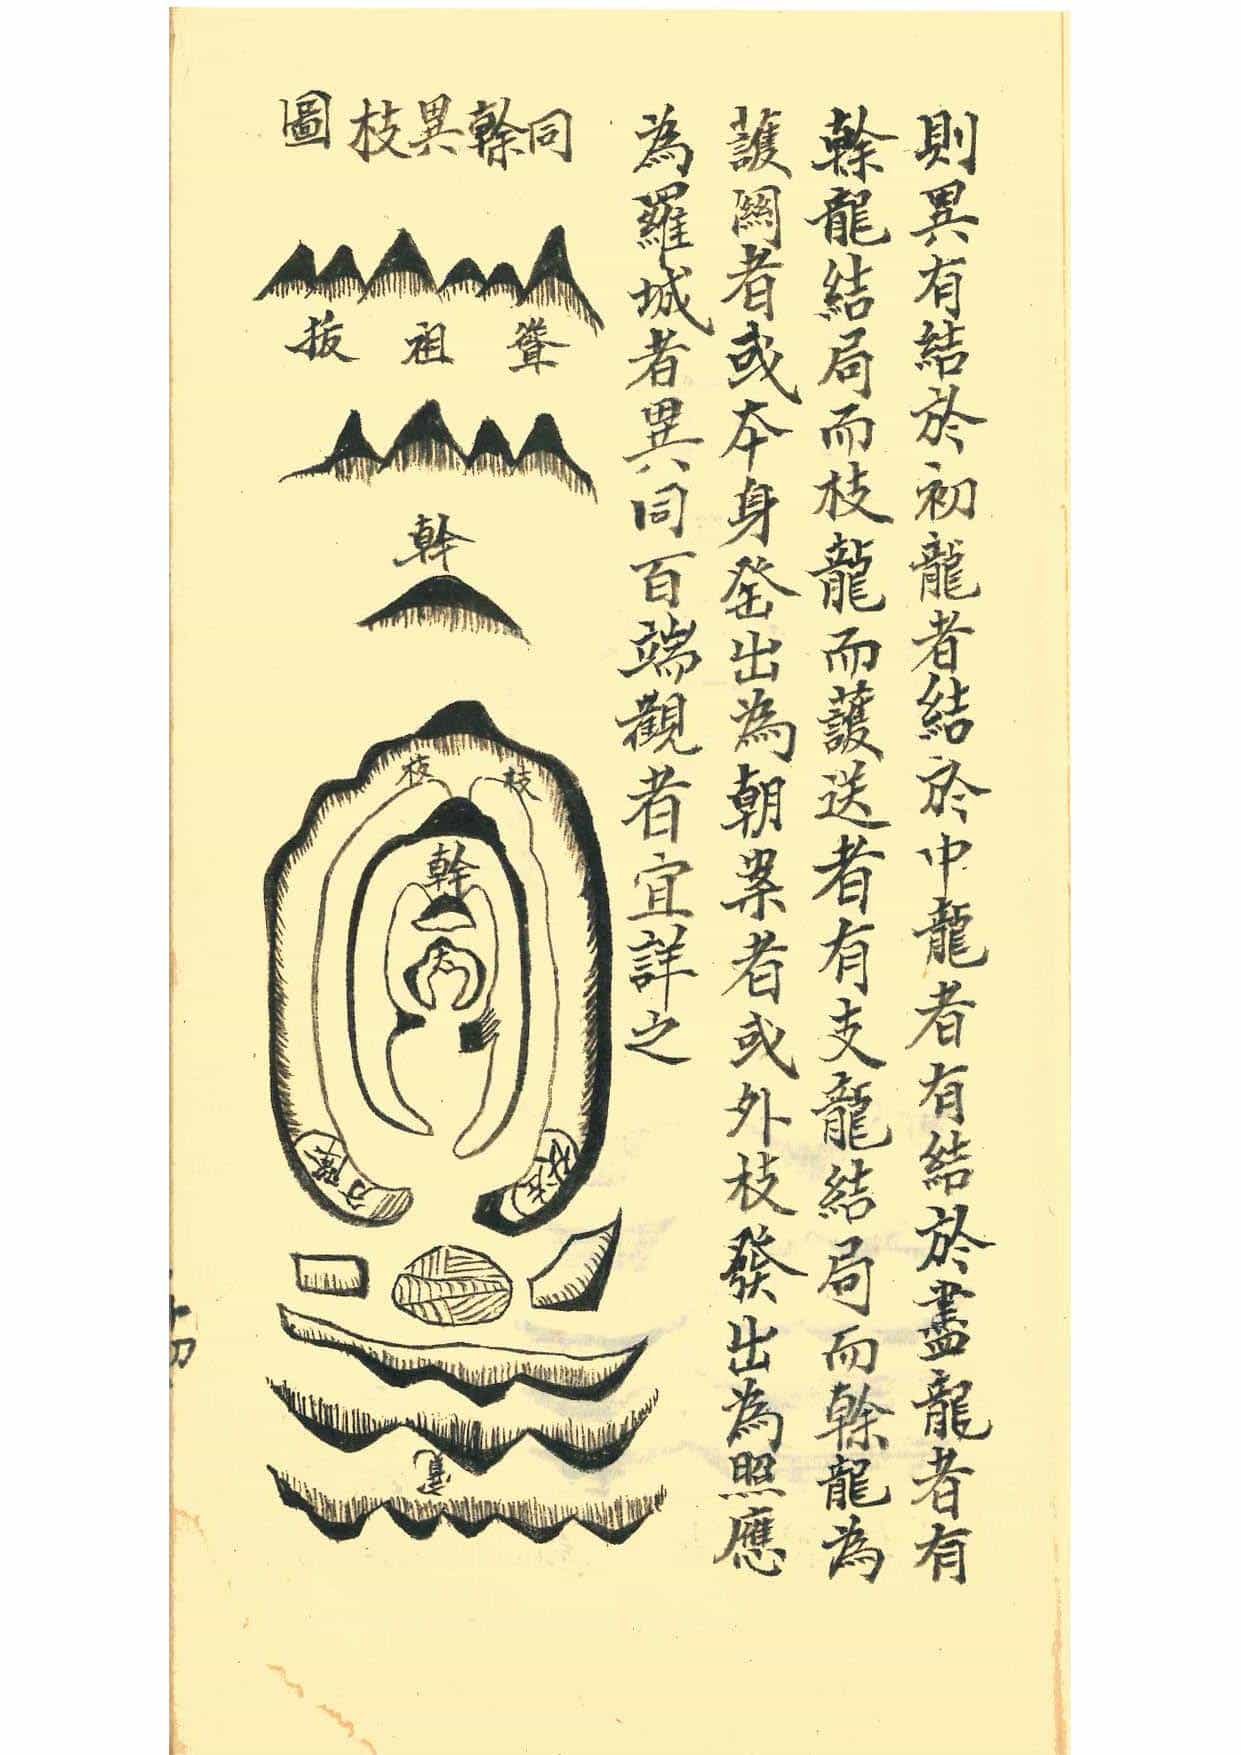 則異有結於初龍者結於中龍者有結於盡龍者有
榦龍結局而枝龍而護送者有支龍結局而榦龍為
護關者或本身發出為朝案者或外枝發出為照應
為羅城者異同百端觀者宜詳之
同榦異枝圖
聳祖拔
幹
枝
枝
幹
穴